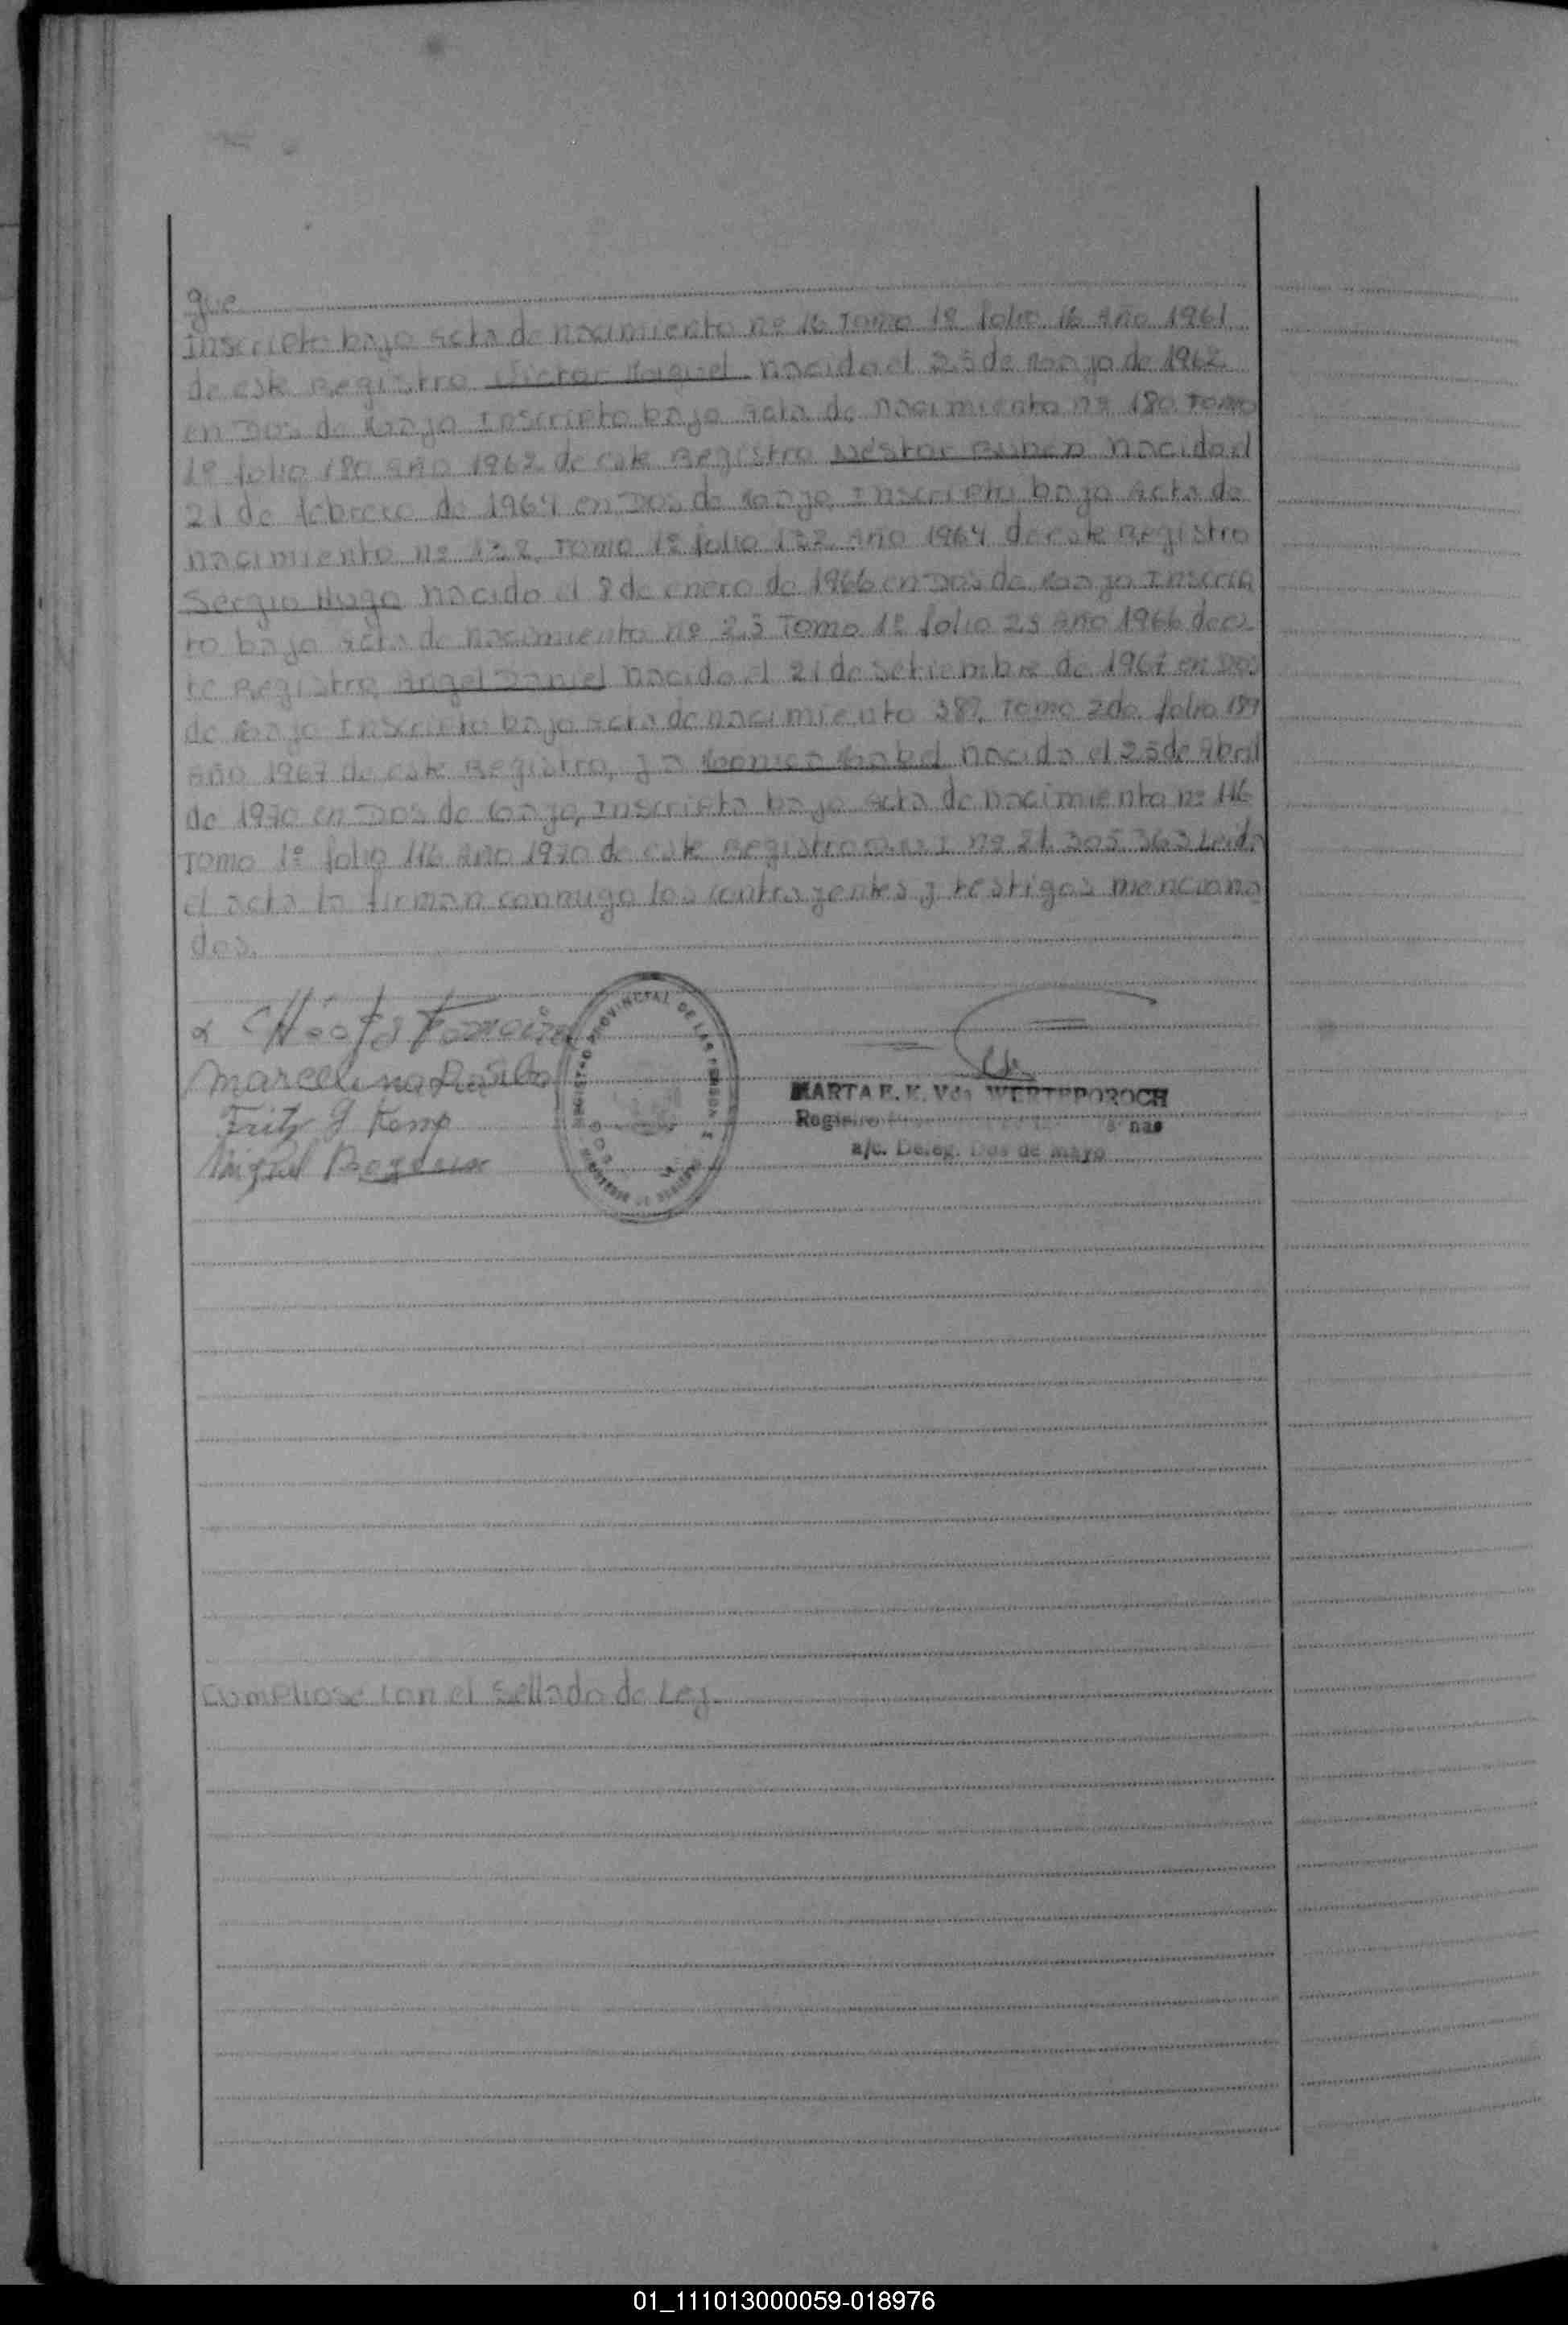 que
Inscripto bajo acta de nacimiento nº 16 Tomo 1º folio 16 año 1961
de este Registro Victor Miguel nacido el 25 de Mayo de 1962
en Dos de Mayo Inscripto bajo acta de nacimiento nº 180 Tomo
1º folio 180 año 1962 de este Registro Néstor Ruben nacido el
21 de febrero de 1964 en Dos de Mayo, Inscripto bajo Acta de
nacimiento nº Tomo 1º folio año 1964 de este Registro
Sergio Hugo nacido el 8 de enero de 1966 en Dos de Mayo Inscrip
to bajo acta de nacimiento nº 25 Tomo 1º folio 25 año 1966 de es
te Registro, Angel Daniel nacido el 21 de setiembre de 1967 en Dos
de Mayo Inscripto bajo acta de nacimiento 387 Tomo 2do folio
año 1967 de este Registro, y a nacida el 25 de Abril
de 1970 en Dos de Mayo, Inscripta bajo acta de nacimiento nº 116
Tomo 1º folio 116 año 1970 de este Registro D.N.I nº 21.305.363 Leida
el acta la firman conmigo los contrayentes y testigos menciona
dos.
Fritz J Kemp
Miguel
REGISTRO PROVINCIAL DE LAS PERSONAS
MARTA E. K. Vda WERTEPOROCH
a/c. Deleg. Dos de Mayo
Cumpliose con el sellado de Ley.
01_111013000059-018976